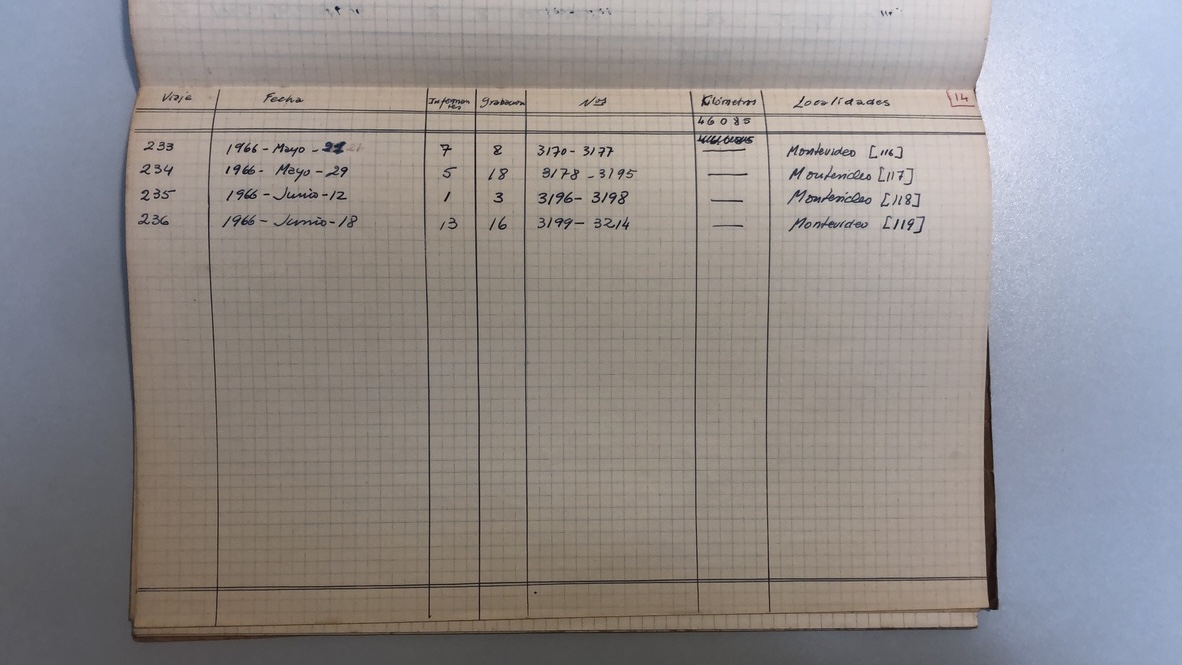 Viaje Fecha Informantes Grabacion Nos Kilómetros Localidades 14
46085
233 1966 - Mayo - 21 7 8 3170 - 3177 — Montevideo [116]
234 1966 - Mayo - 29 5 18 3178 - 3195 — Montevideo [117]
235 1966 - Junio - 12 1 3 3196 - 3198 — Montevideo [118]
236 1966 - Junio - 18 13 16 3199 - 3214 — Montevideo [119]